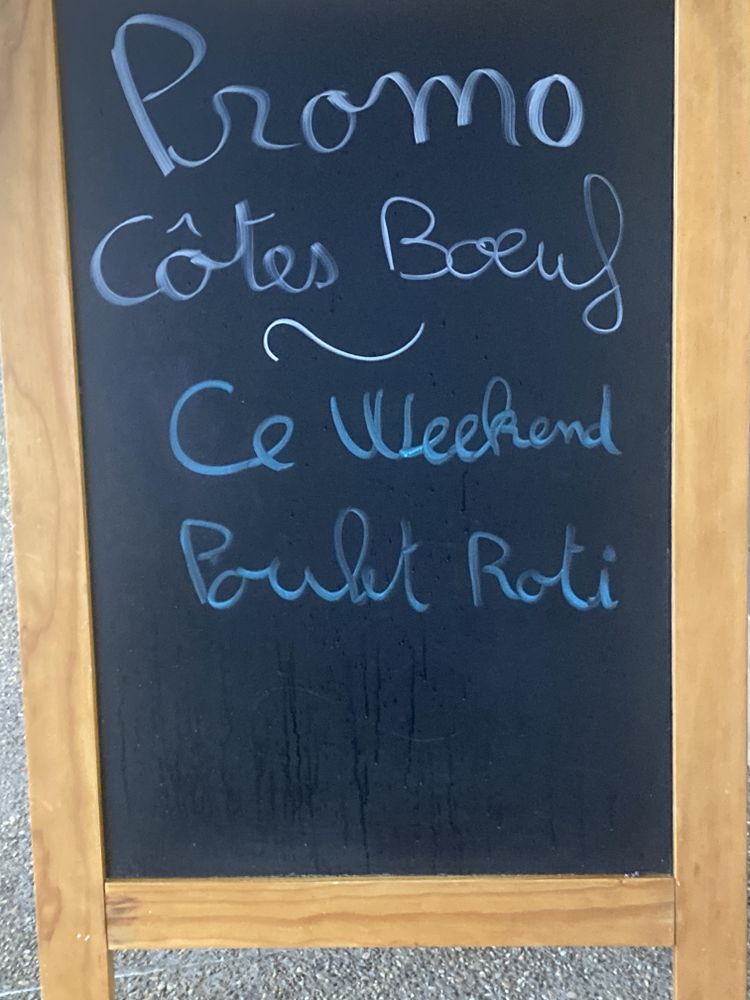 Promo
Côtes Boeuf
Ce Weekend
Poulet Roti